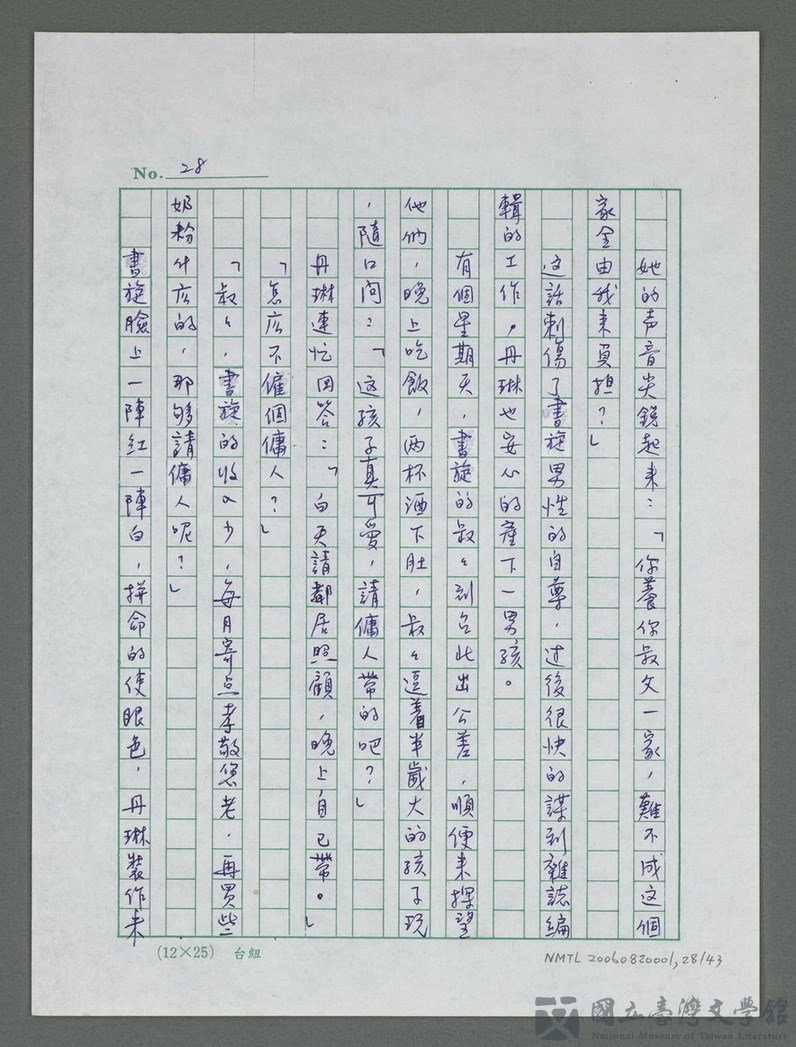 No. 28
她的声音尖銳起来：「你養你叔父一家，難不成这個
家全由我来負担？」
这話刺傷了書旋男性的自尊，过後很快的謀到雜誌編
輯的工作。丹琳也安心的產下一男孩。
有個星期天，書旋的叔々到台北出公差，順便来探望
他們，晚上吃飯，两杯酒下肚，叔々逗着半歲大的孩子玩
，隨口问：「这孩子真可愛，請傭人带的吧？」
丹琳連忙回答：「白天請鄰居照顧，晚上自己帶。」
「怎庅不僱個傭人？」
「叔々，書旋的收入少，每月寄点孝敬您老，再買些
奶粉什庅的，那够請傭人呢？」
書旋臉上一陣紅一陣白，拼命的使眼色，丹琳裝作未
(12×25) 台組
NMTL 20060820001, 28/43
國立臺灣文學館
National Museum of Taiwan Literature